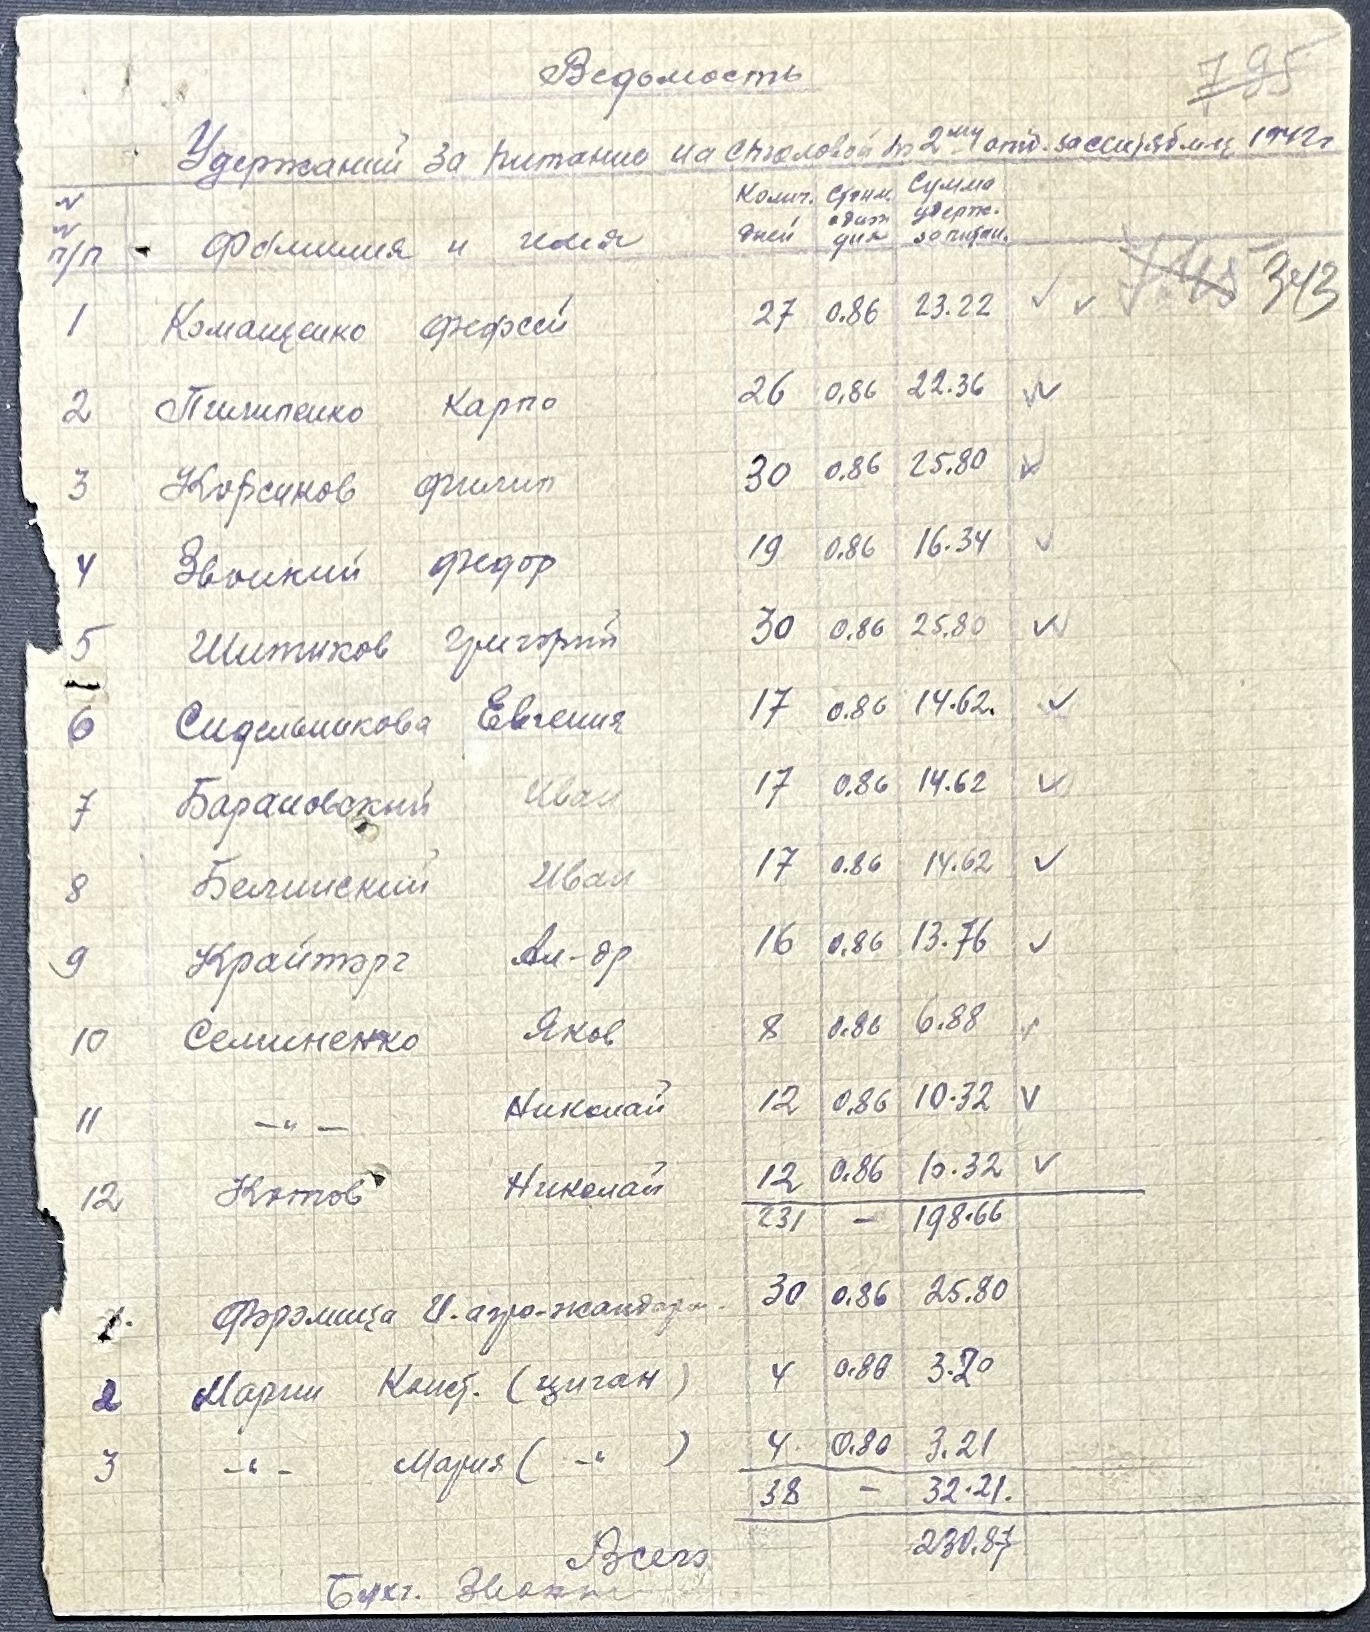 Ведомость
795
Удержаний за питание на столовой по 2му отд. за сентябрь м-ц 1942 г
№ № п/п Фамилия и имя Колич. дней Стоим. одного дня Сумма удерж. за питан.
343
1 Комащенко Федосей 27 0.86 23.22
2 Пилипенко Карпо 26 0.86 22.36
3 Корсиков Филип 30 0.86 25.80
4 Звонкий Федор 19 0.86 16.34
5 Шитиков Григорий 30 0.86 25.80
6 Сидельникова Евгения 17 0.86 14.62.
7 Барановский Иван 17 0.86 14.62
8 Белинский Иван 17 0.86 14.62
9 Крайторг Ал-др 16 0.86 13.76
10 Семиненко Яков 8 0.86 6.88
11 —"— Николай 12 0.86 10.32
12 Котов Николай 12 0.86 10.32
231 — 198.66
1. И. агро-жандарм. 30 0.86 25.80
2 Марин Конст. (циган) 4 0.80 3.20
3 -"- Мария ( -" ) 4 0.80 3.21
38 — 32.21.
Всего 230.87
Бухг. Звонки